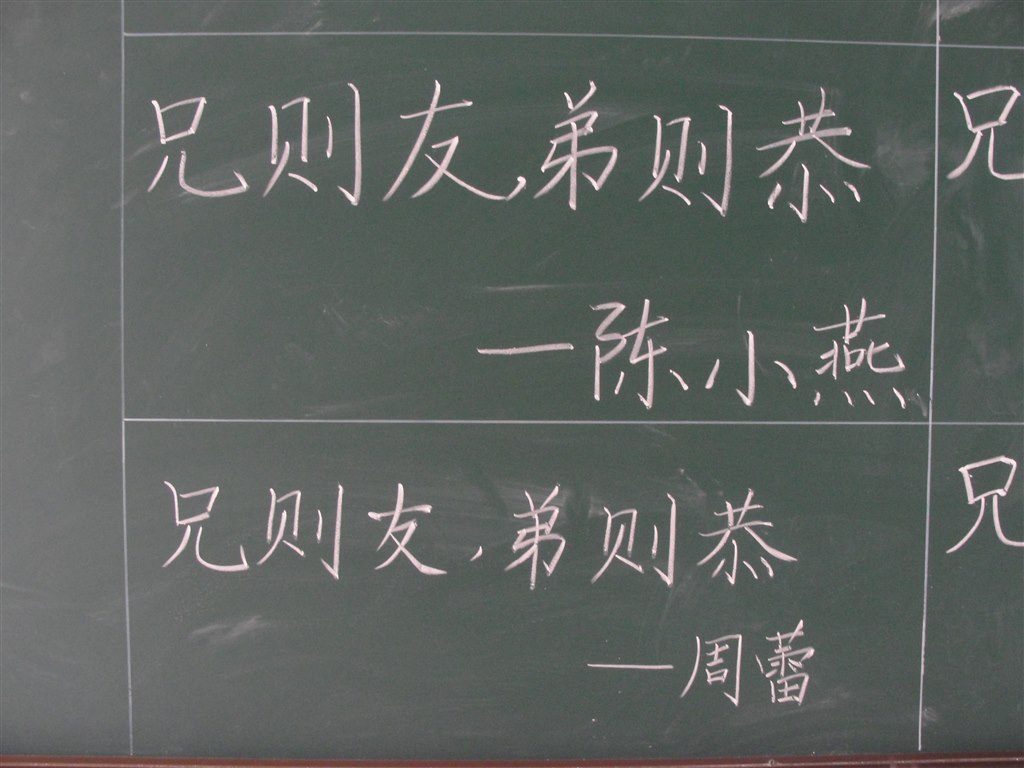 兄则友,弟则恭
—陈小燕
兄则友,弟则恭
—周蕾
兄
兄